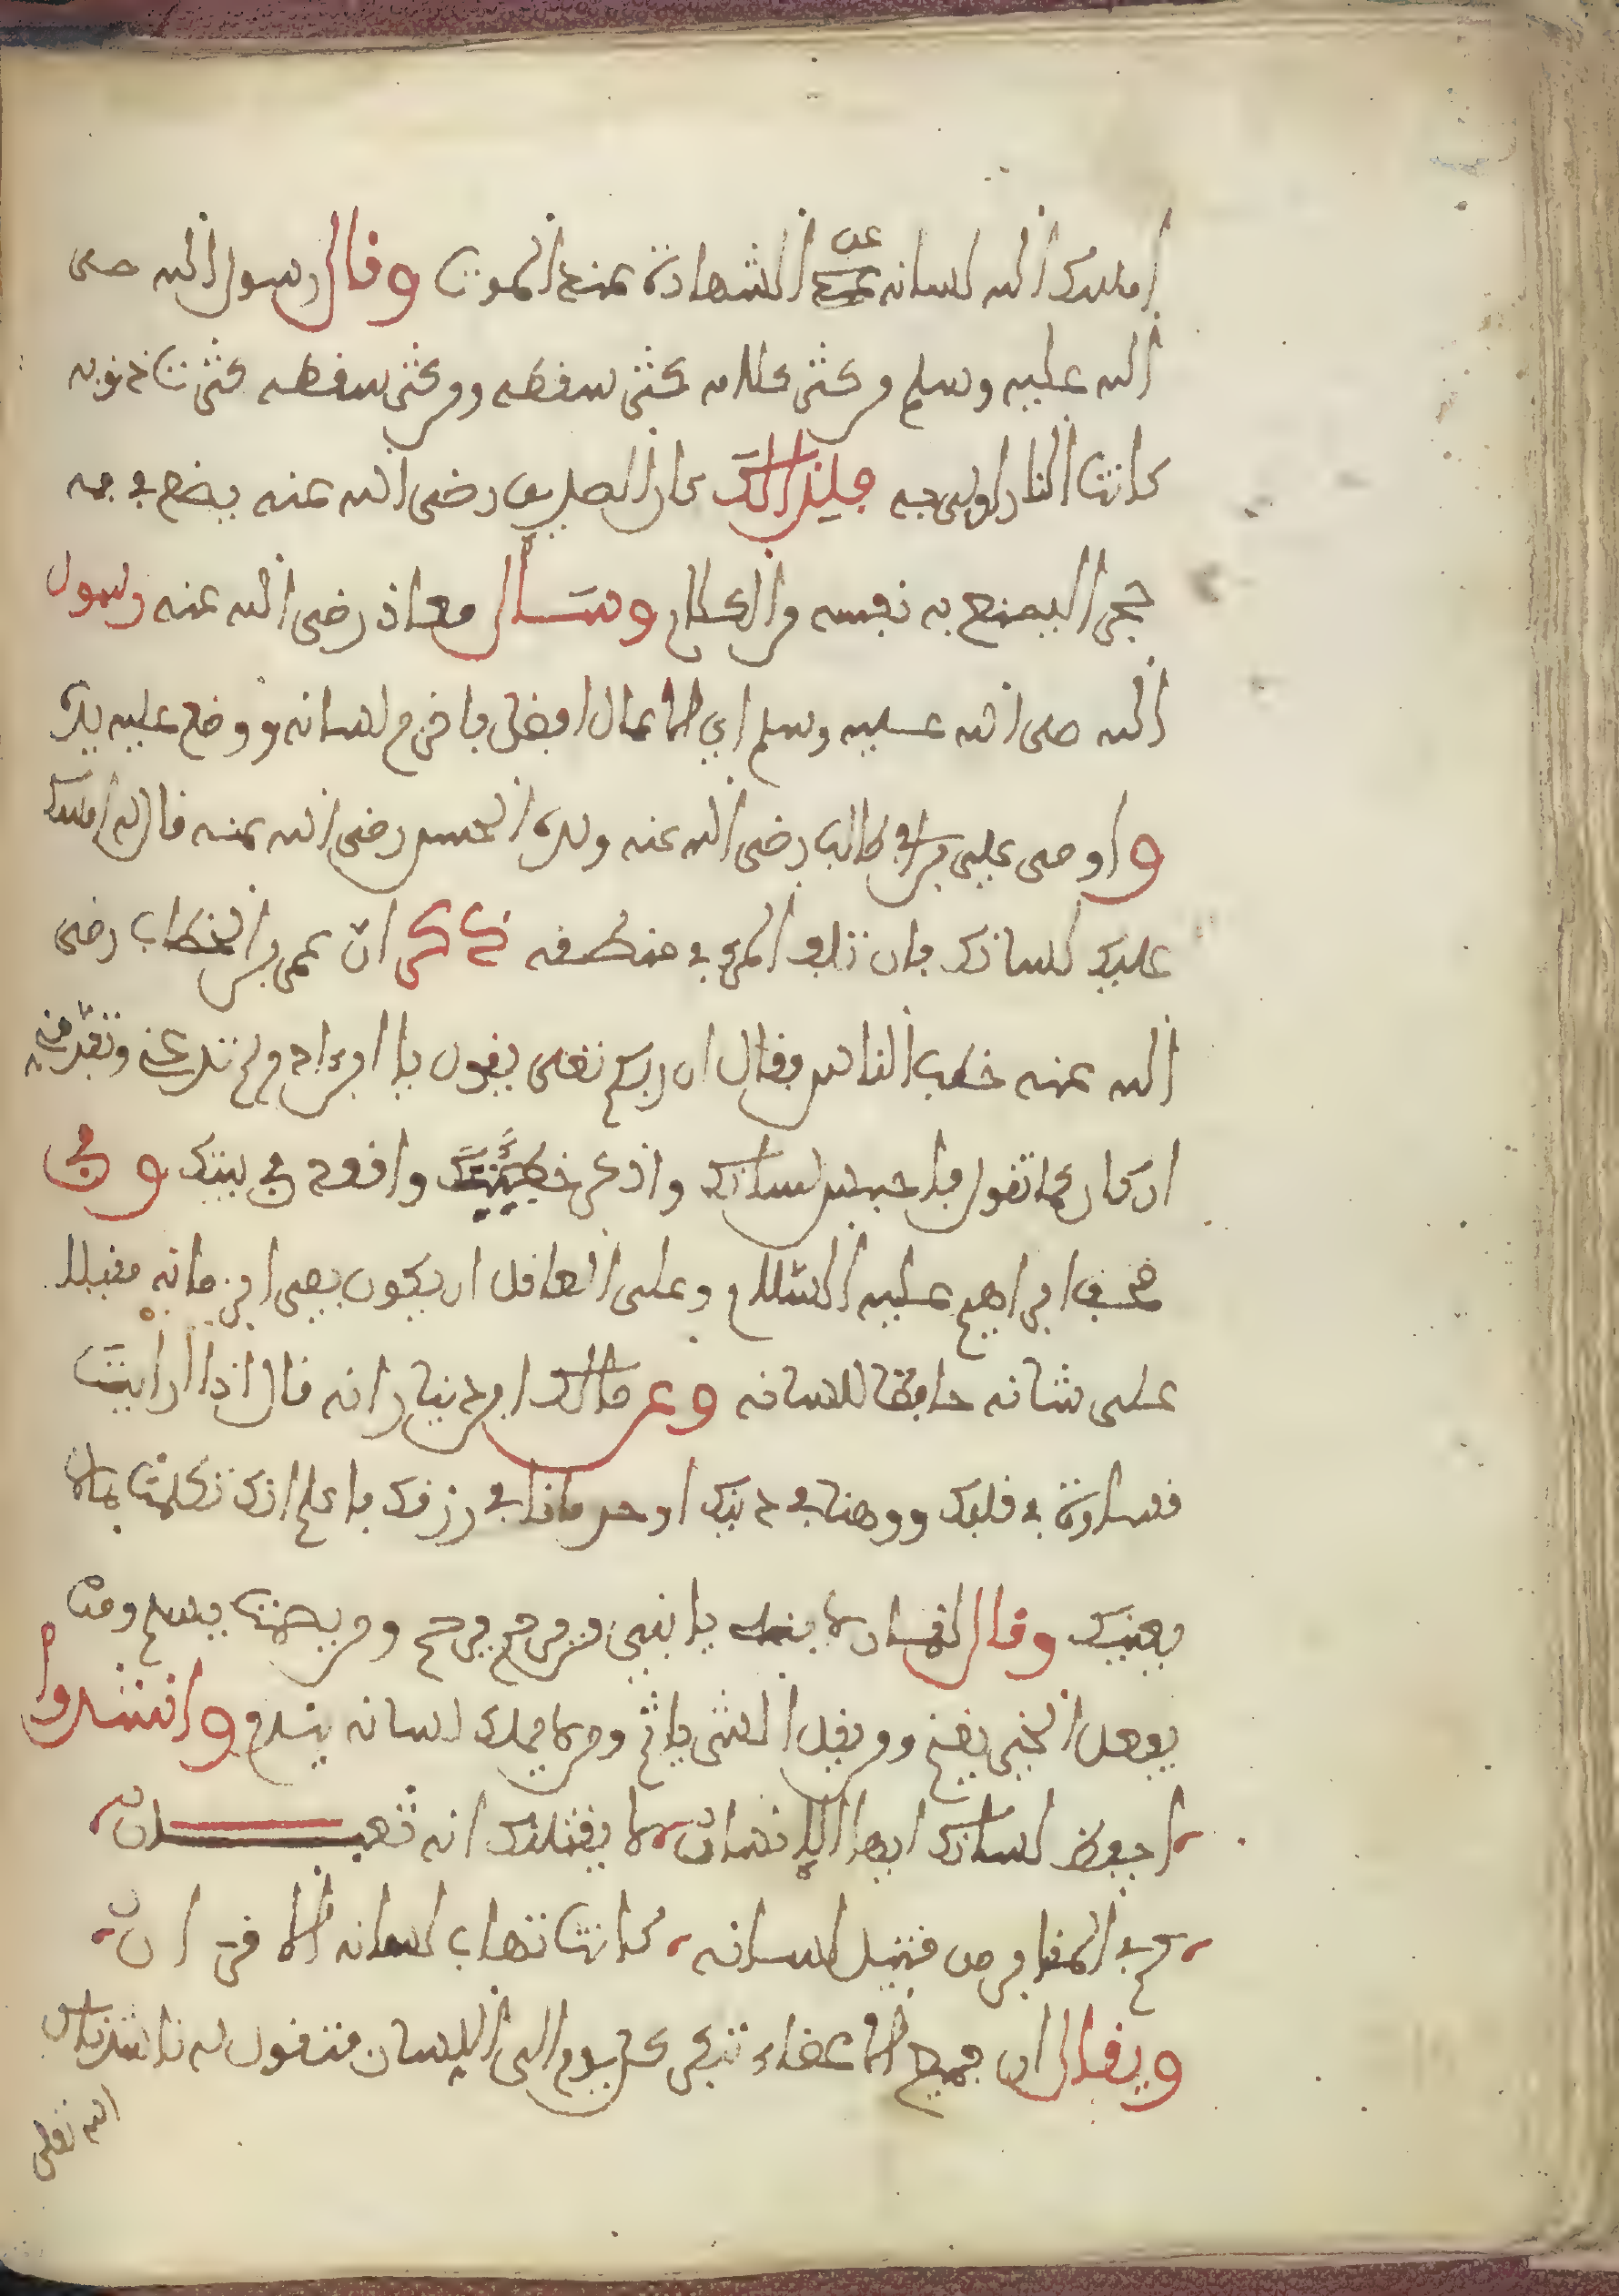 امسك الله لسانه عن الشهادة عند الموت وقال رسول الله صلى
الله عليه وسلم من كثر كلامه كثر سقطه ومن كثر سقطه كثرت ذنوبه
كانت النار اولى به فلذالك كان الصديق رضي الله عنه يضع في فمه
حجرا ليمنع به نفسه من الكلام وسأل معاذ رضي الله عنه رسول
الله صلى الله عليه وسلم اي الاعمال افضل فاخرج لسانه ووضع عليه يده
واوصى علي بن ابي طالب رضي الله عنه ولده الحسن رضي الله عنه قال له امسك
عليك لسانك فان تلاف المرء في منطقه ذكر ان عمر بن الخطاب رضي
الله عنه خطب الناس وقال ان ربكم تعلى يقول يا ابن ادم لم
ان كان كما تقول فاحبس لسانك واذكر خطيئتك واقعد في بيتك وفي
صحف ابراهيم عليه السلام وعلى العاقل ان يكون بصيرا بزمانه مقبلا
على شانه حافظا للسانه وعن مالك ابن دينار انه قال اذا رايت
قساوة في قلبك ووهنا في دينك او حرمانا في رزقك فاعلم انك تكلمت بمالا
يعنيك وقال لقمان لابنه يا بني من يرحم يرحم ومن يصمت يسلم ومن
يفعل الخير يغنم ومن يقل الشر ياثم ومن لا يملك لسانه يندم وانشدوا
احفظ لسانك ايها الانسان لا يقتلنك انه ثعبان
كم في المقابر من قتيل لسانه كانت تهاب لسانه الاقران
ويقال ان جميع الاعضاء تبكر كل يوم الى اللسان فتقول له ناشدناك
الله تعلى